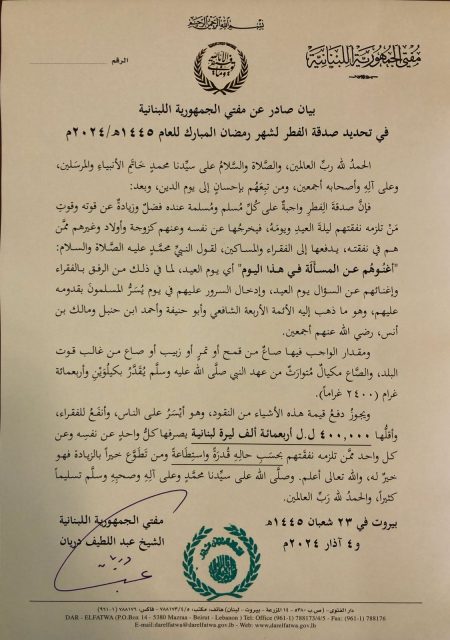 بسم الله الرحمن الرحيم
مفتي الجمهورية اللبنانية
الرقم
بيان صادر عن مفتي الجمهورية اللبنانية
في تحديد صدقة الفطر لشهر رمضان المبارك للعام ١٤٤٥هـ/٢٠٢٤م
الحمدُ لله ربِّ العالمين، والصَّلاة والسَّلامُ على سيِّدنا محمدٍ خَاتَمِ الأنبياءِ والمرسَلين،
وعلى آلِهِ وأصحابِه أجمعين، ومن تبِعَهُم بإحسانٍ إلى يوم الدين، وبعد:
فإنَّ صدقةَ الفِطرِ واجبةٌ على كُلِّ مُسلمٍ ومُسلمة عنده فضلٌ وزيادةٌ عن قوته وقوتِ
مَنْ تلزمه نفقتهم ليلةَ العيدِ ويومَهُ، فيخرجُها عن نفسه وعنهم كزوجة وأولاد وغيرهم ممَّن
هم في نفقته، يدفعها إلى الفقراء والمساكين، لقول النبيِّ محمَّدٍ عليه الصلاة والسلام:
"أغنُوهُم عن المسألةِ في هذا اليوم" أي يوم العيد، لما في ذلك من الرفق بالفقراء
وإغنائهم عن السؤال يوم العيد، وإدخال السرور عليهم في يوم يُسَرُّ المسلمونَ بقدومه
عليهم، وهو ما ذهب إليه الأئمة الأربعة الشافعي وأبو حنيفة وأحمد ابن حنبل ومالك بن
أنس، رضي الله عنهم أجمعين.
ومقدار الواجب فيها صاعٌ من قمحٍ أو تمرٍ أو زبيبٍ أو صاع من غالب قوت
البلد، والصَّاع مكيالٌ مُتوارَثٌ من عهد النبي صلَّى الله عليه وسلَّم يُقدَّرُ بكيلُوَيْنِ وأربعمائة
غرام (٢٤٠٠ غراماً).
ويجوزُ دفعُ قيمة هـذه الأشياء من النقود، وهو أيْسَرُ على الناس، وأنفَعُ للفقراء،
وأقلُّها ٤٠٠,٠٠٠ ل.ل أربعمائة ألف ليرة لبنانية يصرفها كلُّ واحدٍ عن نفسِه وعن
كل واحد ممَّن تلزمه نفقتهم بحَسَبِ حالِهِ قُدرَةً واستِطاعَةً ومن تطوَّع خيراً بالزيادة فهو
خيرٌ له، والله تعالى أعلم. وصلَّى الله على سيِّدنا محمَّدٍ وعلى آلِهِ وصحبِهِ وسلَّم تسليماً
كثيراً، والحمدُ لله رَبِّ العالمين.
بيروت في ٢٣ شعبان ١٤٤٥هـ
و ٤ آذار ٢٠٢٤م
مفتي الجمهورية اللبنانية
الشيخ عبد اللطيف دريان
دار الفتوى - (ص ب ٥٣٨٠ - ١٤ المزرعة - بيروت - لبنان) هاتف: مكتب: ٤/٥/٧٨٨١٧٣ - فاكس: ٧٨٨١٧٦ (٩٦١-١)
DAR - ELFATWA (P.O.Box 14 - 5380 Mazraa - Beirut - Lebanon ) Tel: Office (961-1) 788173/4/5 - Fax: (961-1) 788176
E-mail:darelfatwa@darelfatwa.gov.lb - Web: www.darelfatwa.gov.lb